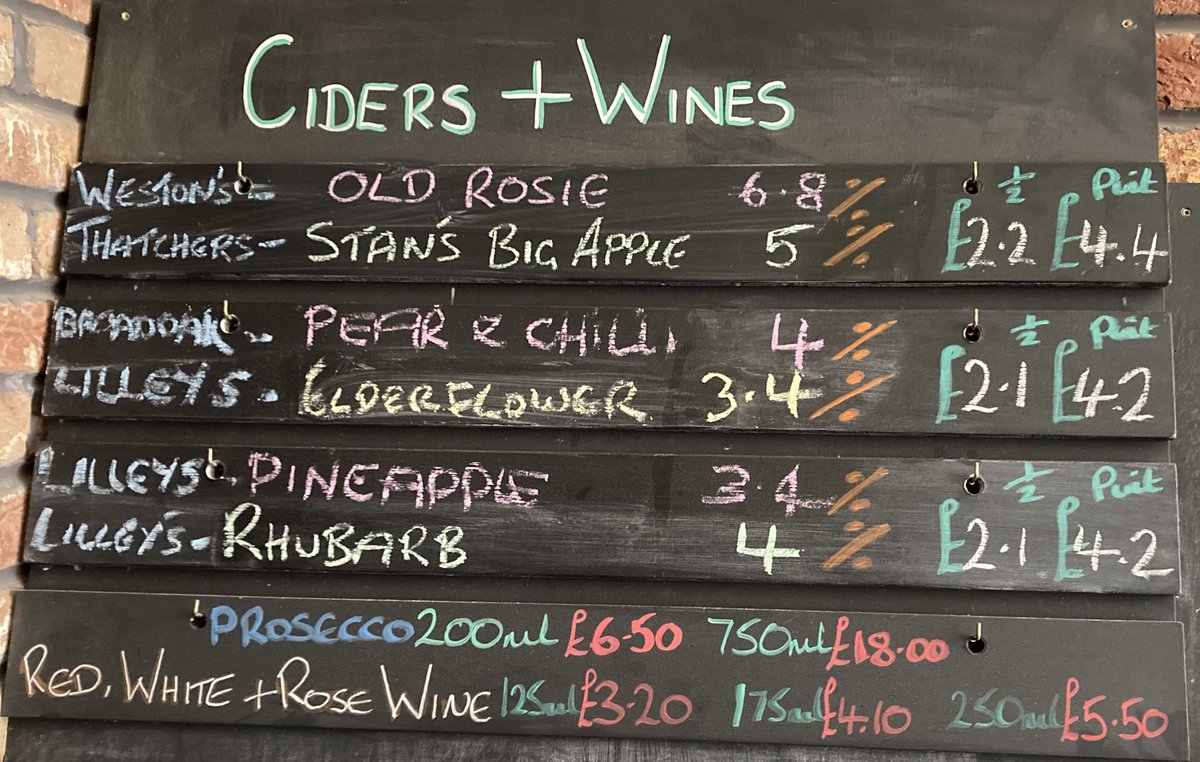 CIDERS + WINES
WESTON'S - OLD ROSIE 6.8 % ½ Pint
THATCHERS - STAN'S BIG APPLE 5 % £2.2 £4.4
BROADOAK - PEAR & CHILLI 4 % ½ Pint
LILLEY'S - ELDERFLOWER 3.4 % £2.1 £4.2
LILLEYS - PINEAPPLE 3.4 % ½ Pint
LILLEY'S - RHUBARB 4 % £2.1 £4.2
PROSECCO 200ml £6.50 750ml £18.00
RED, WHITE + ROSE WINE 125ml £3.20 175ml £4.10 250ml £5.50